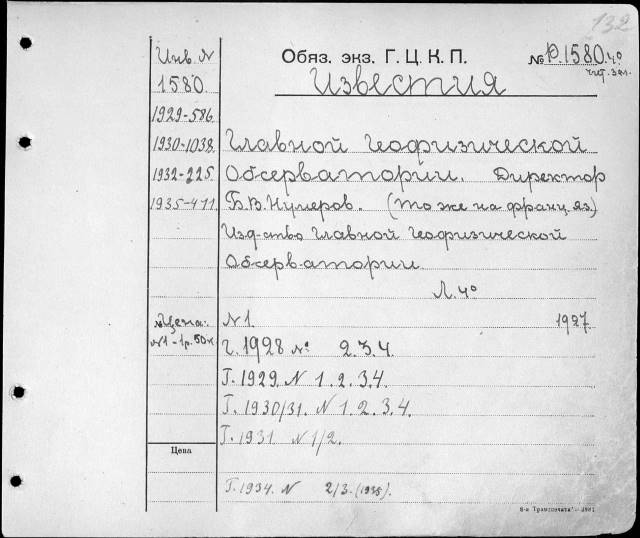 132
Инв. N
1580.
1929-586
1930-1038.
1932-225.
1935-411
Обяз. экз. Г. Ц. К. П.
№ Р.1580.4º
чит. зал.
Известия
Главной Геофизической
Обсерватории. Директор
Б.В.Нумеров. (То же на франц. яз.)
Изд-ство Главной Геофизической
Обсерватории
Л. 4º
Цена:
N1-1р.50к
N1. 1927.
Г. 1928 № 2.3.4.
Г. 1929. N 1.2.3.4.
Г. 1930/31. N 1.2.3.4.
Г. 1931 N 1/2.
Цена
Г. 1934. N 2/3. (1935).